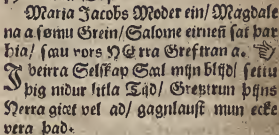 Maria Jacobs Moder ein/ Magdale
na a sømu Grein/ Salome eirnefi sat þar
hia/ sau vors HErra Greftran a. ☞
I þeirra Selskap Sæl mijn blijd/ settu
þig nidur litla Tijd/ Greztrun þijns
Herra giæt vel ad/ gagnlaust mun ecke
vera þad.